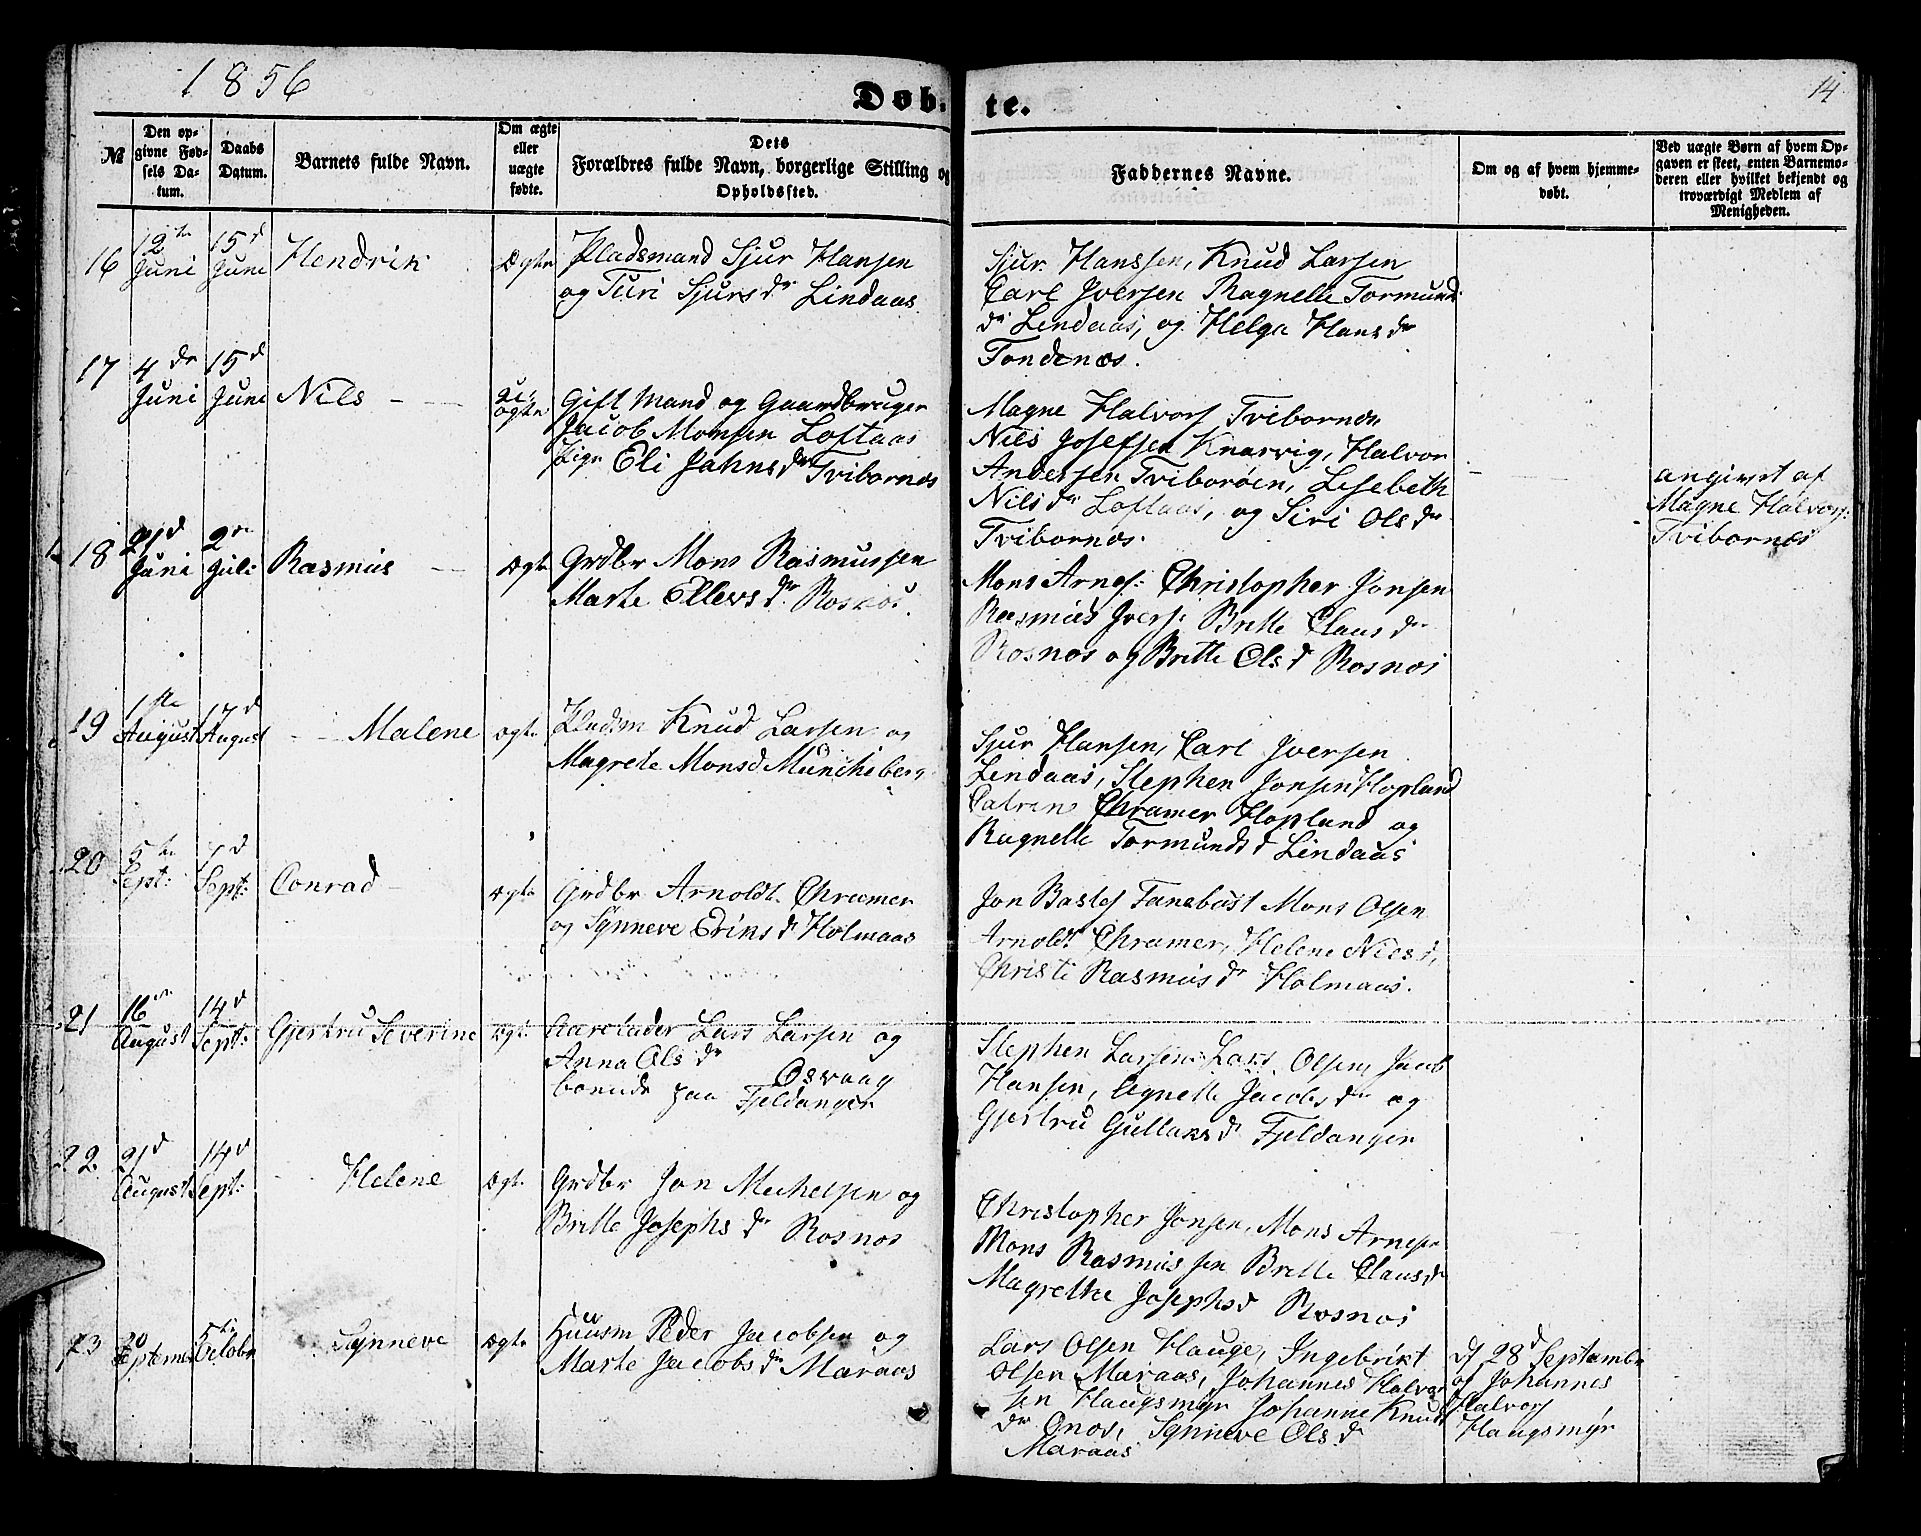 1856
Døb-
te.
14
№
Den op-
givne Fød-
sels Da-
tum.
Daabs
Datum.
Barnets fulde Navn.
Om ægte
eller
uægte
fødte.
Dets
Forældres fulde Navn, borgerlige Stilling og
Opholdssted.
Faddernes Navne.
Om og af hvem hjemme-
døbt.
Ved uægte Børn af hvem Op-
gaven er skeet, enten Barnemo-
deren eller hvilket bekjendt og
troværdigt Medlem af
Menigheden.
16
12te
Juni
15d
Juni
Hendrik
Ægte
Pladsmand Sjur Hansen
og Turi Sjursdr Lindaas
Sjur Hanssen, Knud Larsen
Carl Iversen Ragnelle Tormunds
dr Lindaas, og Helga Hansdr
Tondenæs.
17
4de
Juni
15d
Juni
Nils
uegte
Gift Mand og Gaardbruger
Jacob Monsen Loftaas
Pige Eli Jahnsdr Tvibornæs
Magne Halvors Tvibornæs
Nils Josefsen Knarvig, Halvor
Andersen Tviborøen, Lisebeth
Nilsdr Loftaas, og Siri Olsdr
Tvibornæs.
angivet af
Magne Halvors:
Tvibornæs
18
21d
Juni
2en
Juli
Rasmus
Ægte
Grdbr Mons Rasmussen
Marte Ellevsdr Rosnøs.
Mons Arnes: Christopher Jonsen
Rasmus Ivers: Britte Clausdr
Rosnøs og Britte Olsd Rosnøs
19
1ste
August
17d
August
Malene
Ægte
Pladsm Knud Larsen og
Magrete Monsd Müncheberg
Sjur Hansen, Carl Iversen
Lindaas, Stephen Jonsen Hopland
Catrine Chramer Hopland og
Ragnelle Tormundsd Lindaas
20
5te
Sept:
7d
Sept:
Conrad
Ægte
Grdbr Arnoldt Chramer
og Synneve Erinsd Holmaas
Jon Bastes Fanebust Mons Olsen
Arnoldt Chramer, Helene Nilsd,
Christi Rasmusdr Holmaas.
21
16en
August
14d
Sept:
Gjertru Severine
Ægt.
Aarelader Lars Larsen og
Anna Olsdr Osvaag
boende paa Fjeldanger
Stephen Larsen Lars Olsen, Jacob
Hansen, Agnette Jacobsdr og
Gjertru Gullaksd Fjeldanger
22.
21d
August
14d
Sept:
Helene
Ægt.
Grdbr Jon Michelsen og
Britte Josephsdr Rosnøs
Christopher Jonsen, Mons Arnesen
Mons Rasmussen Britte Clausdr
Magrethe Josephsd Rosnøs
23
20
Septemer
5te
Octobr
Synneve
Ægte
Huusm Peder Jacobsen og
Marte Jacobsdr Maraas
Lars Olsen Hauge, Ingebrikt
Olsen Maraas, Johannes Halvor
sen Haugsmyr Johanne Knuds
dr Onøs, Synneve Olsd
Maraas
d 28d Septembr
af Johannes
Halvors
Haugsmyr